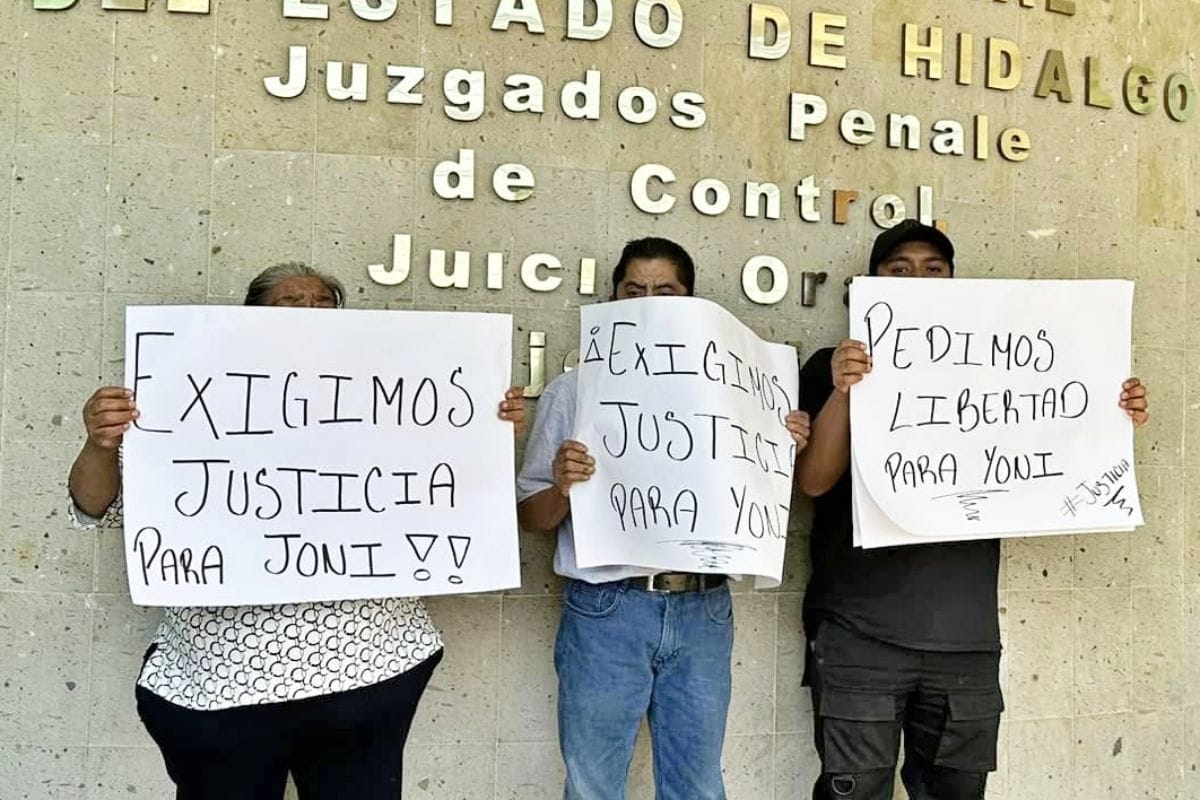 DEL ESTADO DE HIDALGO
Juzgados Penale
de Control,
Juicio Or
EXIGIMOS
JUSTICIA
PARA JONI !!
¡EXIGIMOS
JUSTICIA
PARA YONI
PEDIMOS
LIBERTAD
PARA YONI
#JUSTICIA